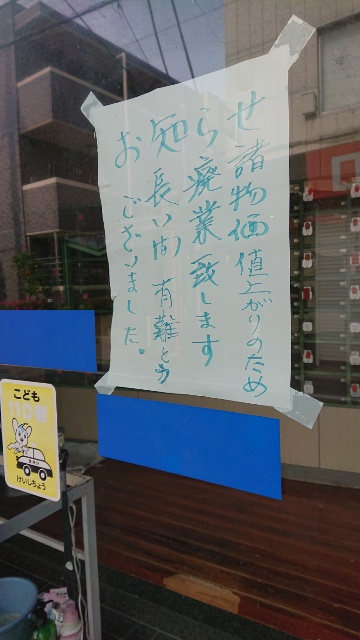 お知らせ
諸物価値上がりのため
廃業致します
長い間有難とう
ございました。
こども
110番
けいしちょう